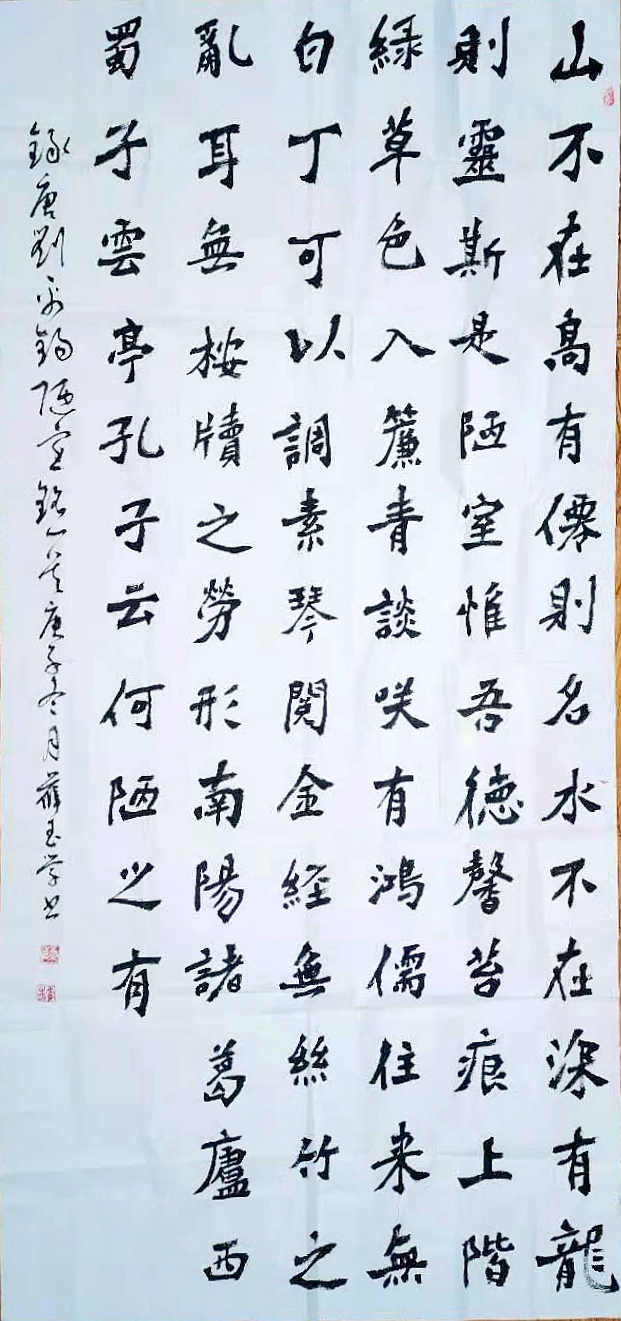 山不在髙有僊則名水不在深有龍
則靈斯是陋室惟吾德馨苔痕上階
綠草色入簾青談咲有鴻儒往来無
白丁可以調素琴閱金経無絲竹之
亂耳無桉牘之勞形南陽諸葛廬西
蜀子雲亭孔子云何陋之有
錄唐劉禹錫陋室銘一首庚子冬月薛玉学书